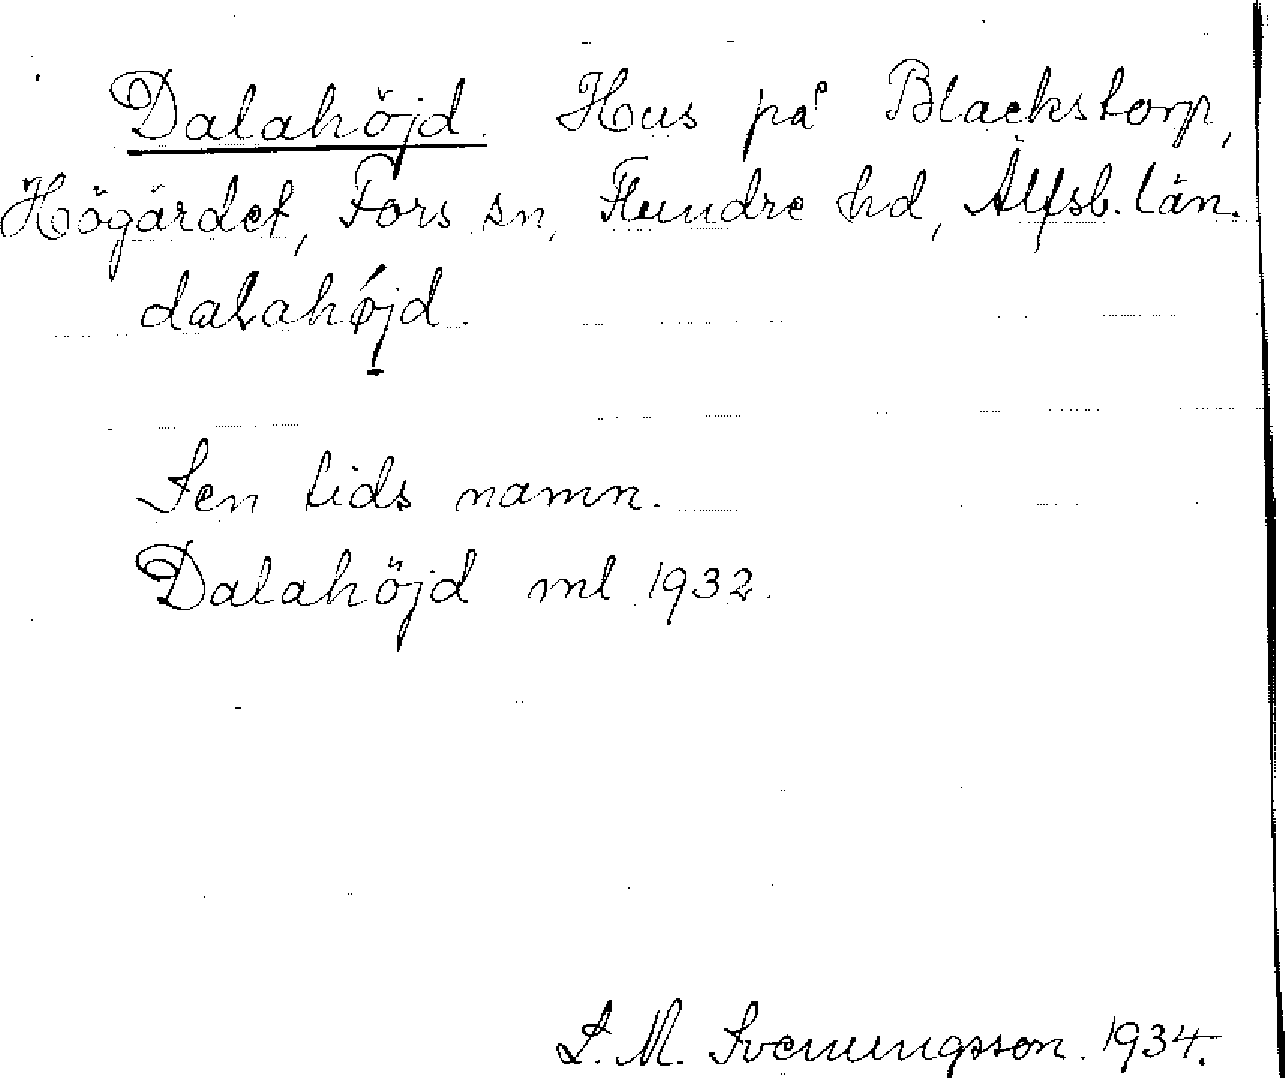 Dalahöjd. Hus på Blackstorp,
Högärdet, Fors sn, Flundre hd, Älfsb. län.
dalahøjd.
Sen tids namn.
Dalahöjd ml 1932.
S. M. Svenungsson. 1934.